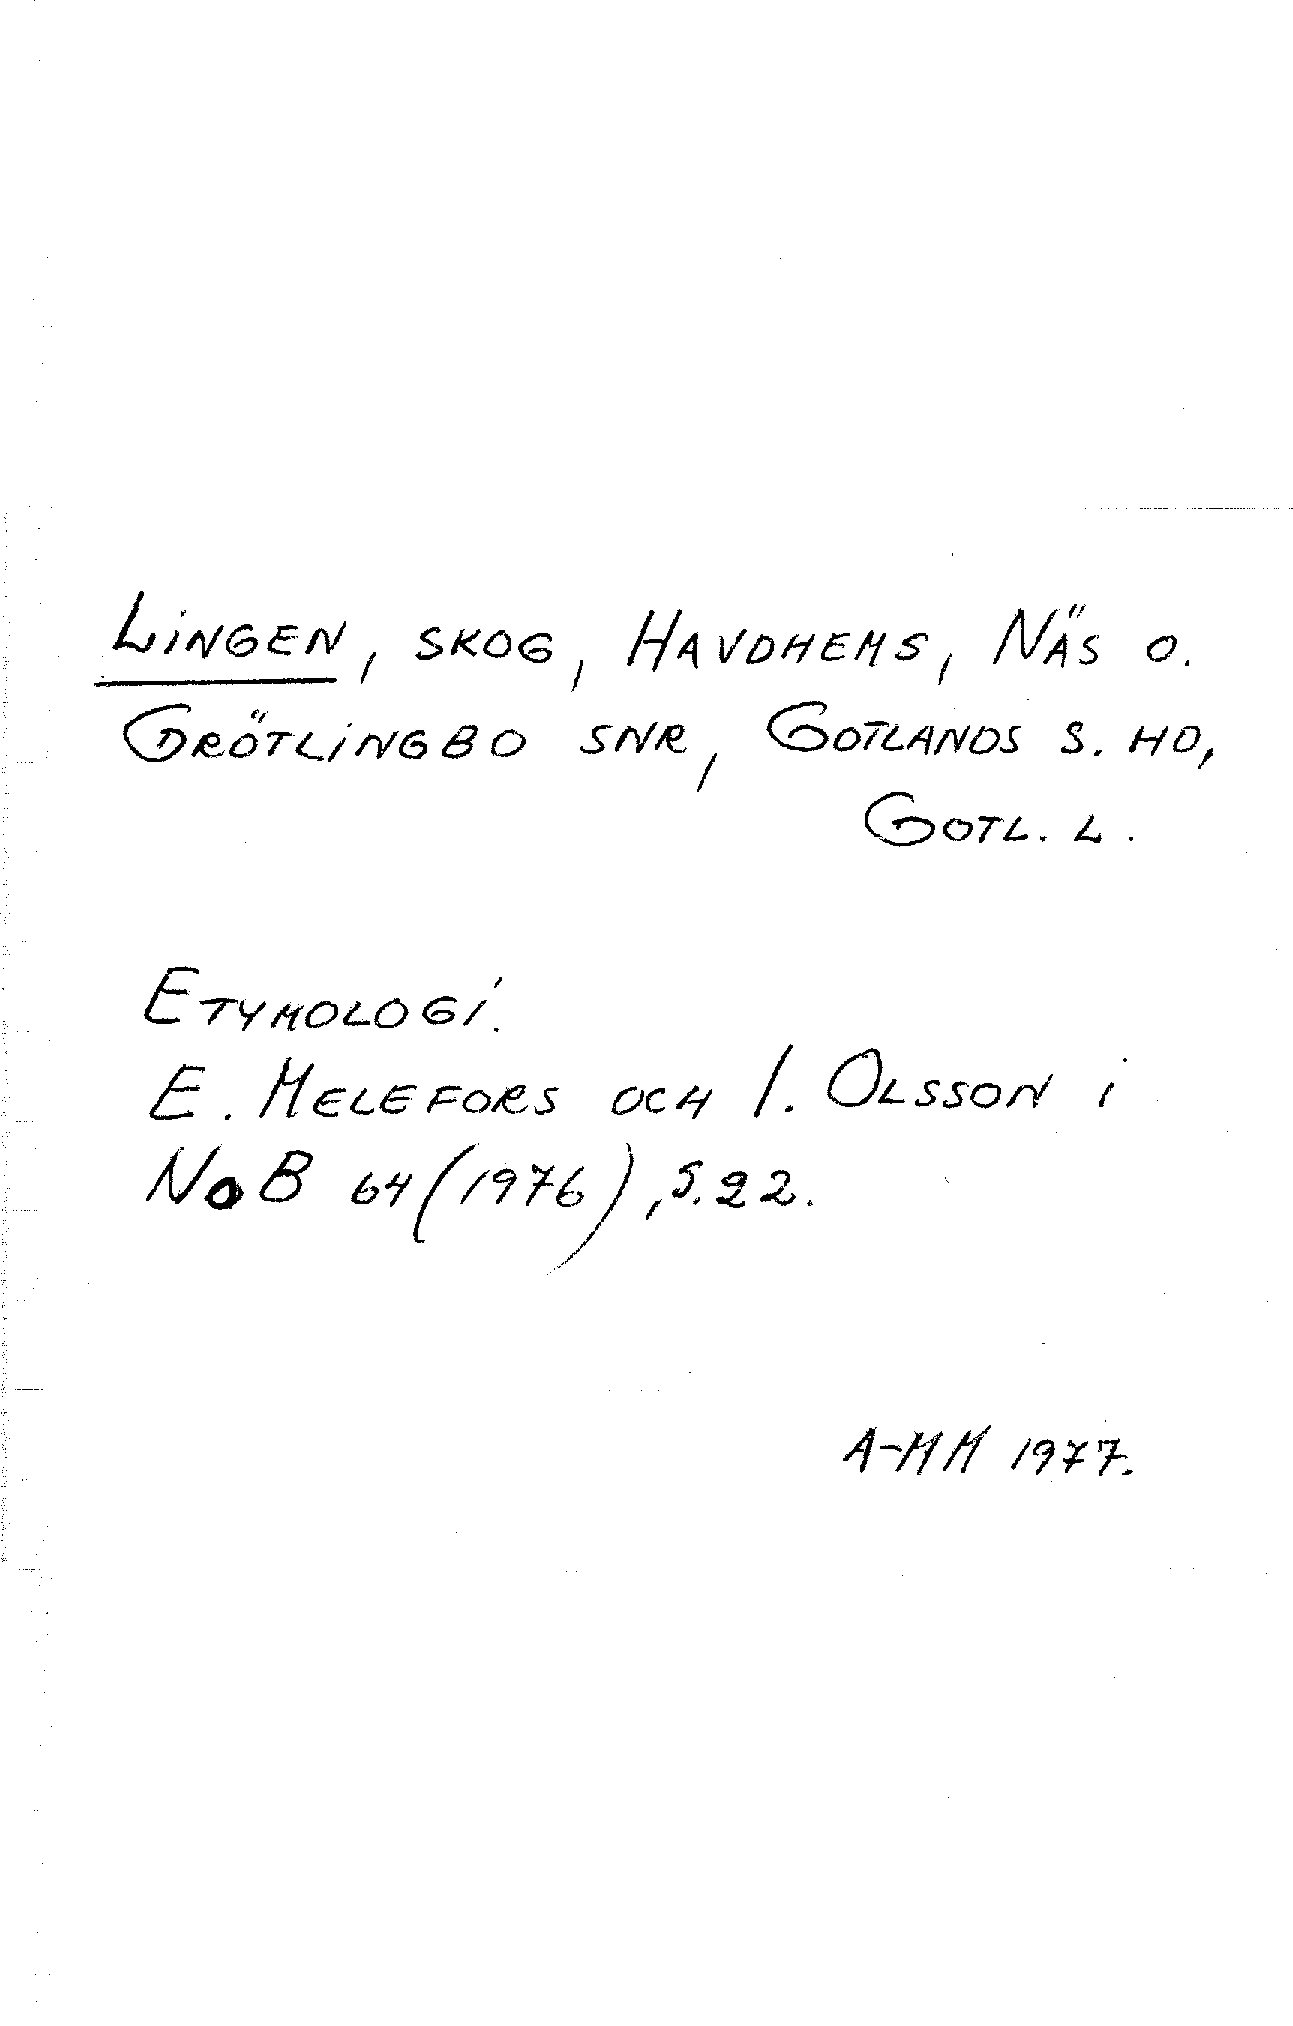 LINGEN, SKOG, HAVDHEMS, NÄS O.
GRÖTLINGBO SNR, GOTLANDS S. HD,
GOTL. L.
ETYMOLOGI.
E. MELEFORS OCH I. OLSSON I
NoB 64 (1976), S. 22.
A-MM 1977.